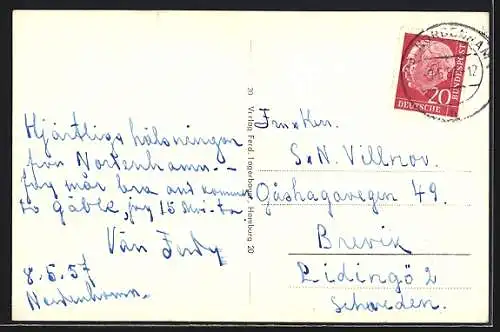 Hjärtliga hälsningar
från Nordenhamn. -
Jag mår bra och kommer
to Gävle, jag 15
Vän Ferdy
8.5.57
Nordenhamn.
20 Verlag Ferd. Lagerbauer, Hamburg 20
NORDENHAM
DEUTSCHE BUNDESPOST
20
12
S.N. Villnov.
Gåshagavegen 49.
Brevik
Lidingö 2
Schweden.